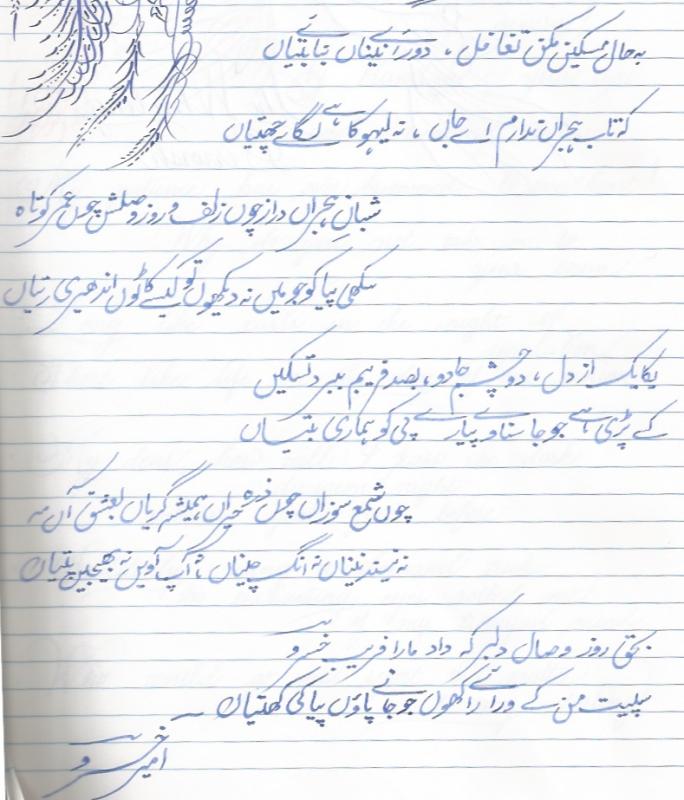 به حال مسکیں مکن تغافل ، دورائے نیناں بنائے بتیاں
که تاب ہجراں ندارم اے جاں ، نه لیہو کاہے لگائے چھتیاں
شبانِ ہجراں دراز چوں زلف و روز وصلش چوں عمر کوتاه
سکھی پیا کو جو میں نه دیکھوں تو کیسے کاٹوں اندھیری رتیاں
یکایک از دل ، دو چشم جادو ، بصد فریبم ببرد تسکیں
کسے پڑی ہے جو جا سناوے پیارے پی کو ہماری بتیاں
چوں شمع سوزاں چوں ذره حیراں ہمیشه گریاں بعشق آں مه
نه نیند نیناں نه انگ چیناں نه آپ آویں نه بھیجیں پتیاں
بحق روز وصال دلبر که داد مارا فریب خسرو
سپیت من کے ورائے راکھوں جو جانے پاؤں پیا کی کھتیاں
امیر خسرو